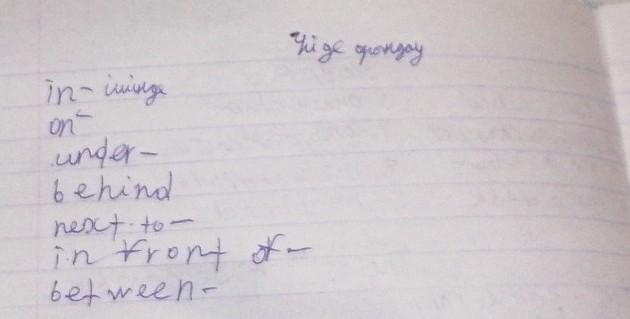 Үйге
in - ішінде
on -
under -
behind
next to -
in front of -
between -